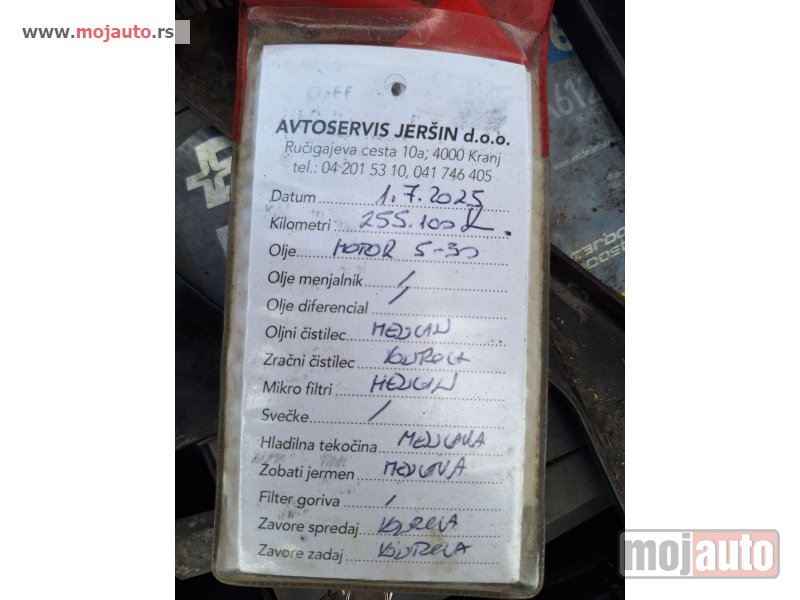 www.mojauto.rs
AVTOSERVIS JERŠIN d.o.o.
Ručigajeva cesta 10a, 4000 Kranj
tel.: 04 201 53 10, 041 746 405
Datum 1.7.2025
Kilometri 255.100
Olje MOTOR 5-30
Olje menjalnik /
Olje diferencial /
Oljni čistilec MENJAN
Zračni čistilec KONTROLA
Mikro filtri MENJAN
Svečke /
Hladilna tekočina MENJANA
Zobati jermen MENJAN
Filter goriva /
Zavore spredaj KONTROLA
Zavore zadaj KONTROLA
mojauto